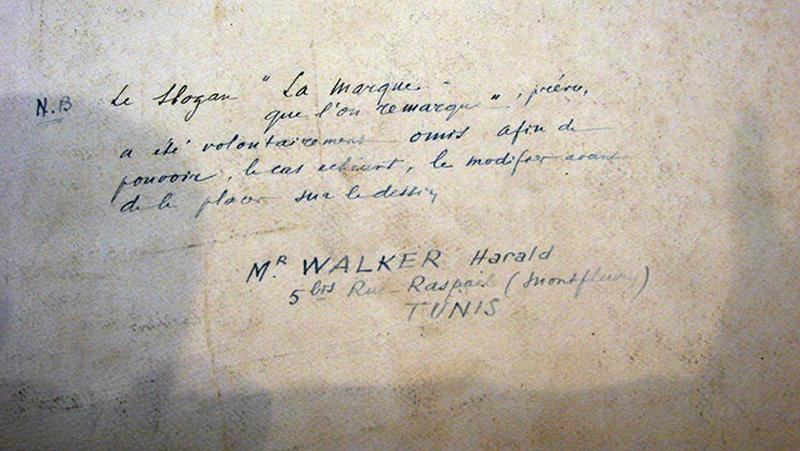 N.B Le slogan " La marque
que l'on remarque ", prévu,
a été volontairement omis afin de
pouvoir, le cas échéant, le modifier avant
de le placer sur le dessin
Mr WALKER Harald
5 bis Rue Raspail (Montfleury)
TUNIS